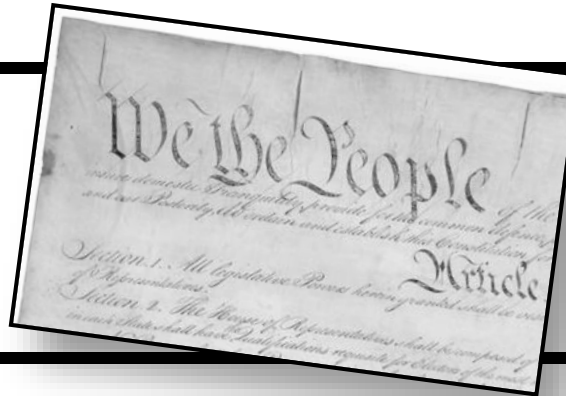 We the People of the
insure domestic Tranquility, provide for the common defence,
and our Posterity, do ordain and establish this Constitution for
Article
Section. 1. All legislative Powers herein granted shall be
of Representatives.
Section. 2. The House of Representatives shall be composed of
in each State shall have Qualifications requisite for Electors of the most